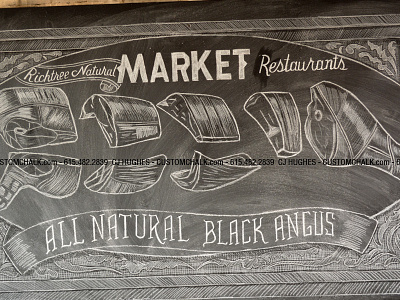 Richtree Natural MARKET Restaurants
CUSTOMCHALK.COM - 615.482.2839 CJ HUGHES - CUSTOMCHALK.COM - 615.482.2839 CJ HUGHES - CUSTOMCHALK.COM
ALL NATURAL BLACK ANGUS